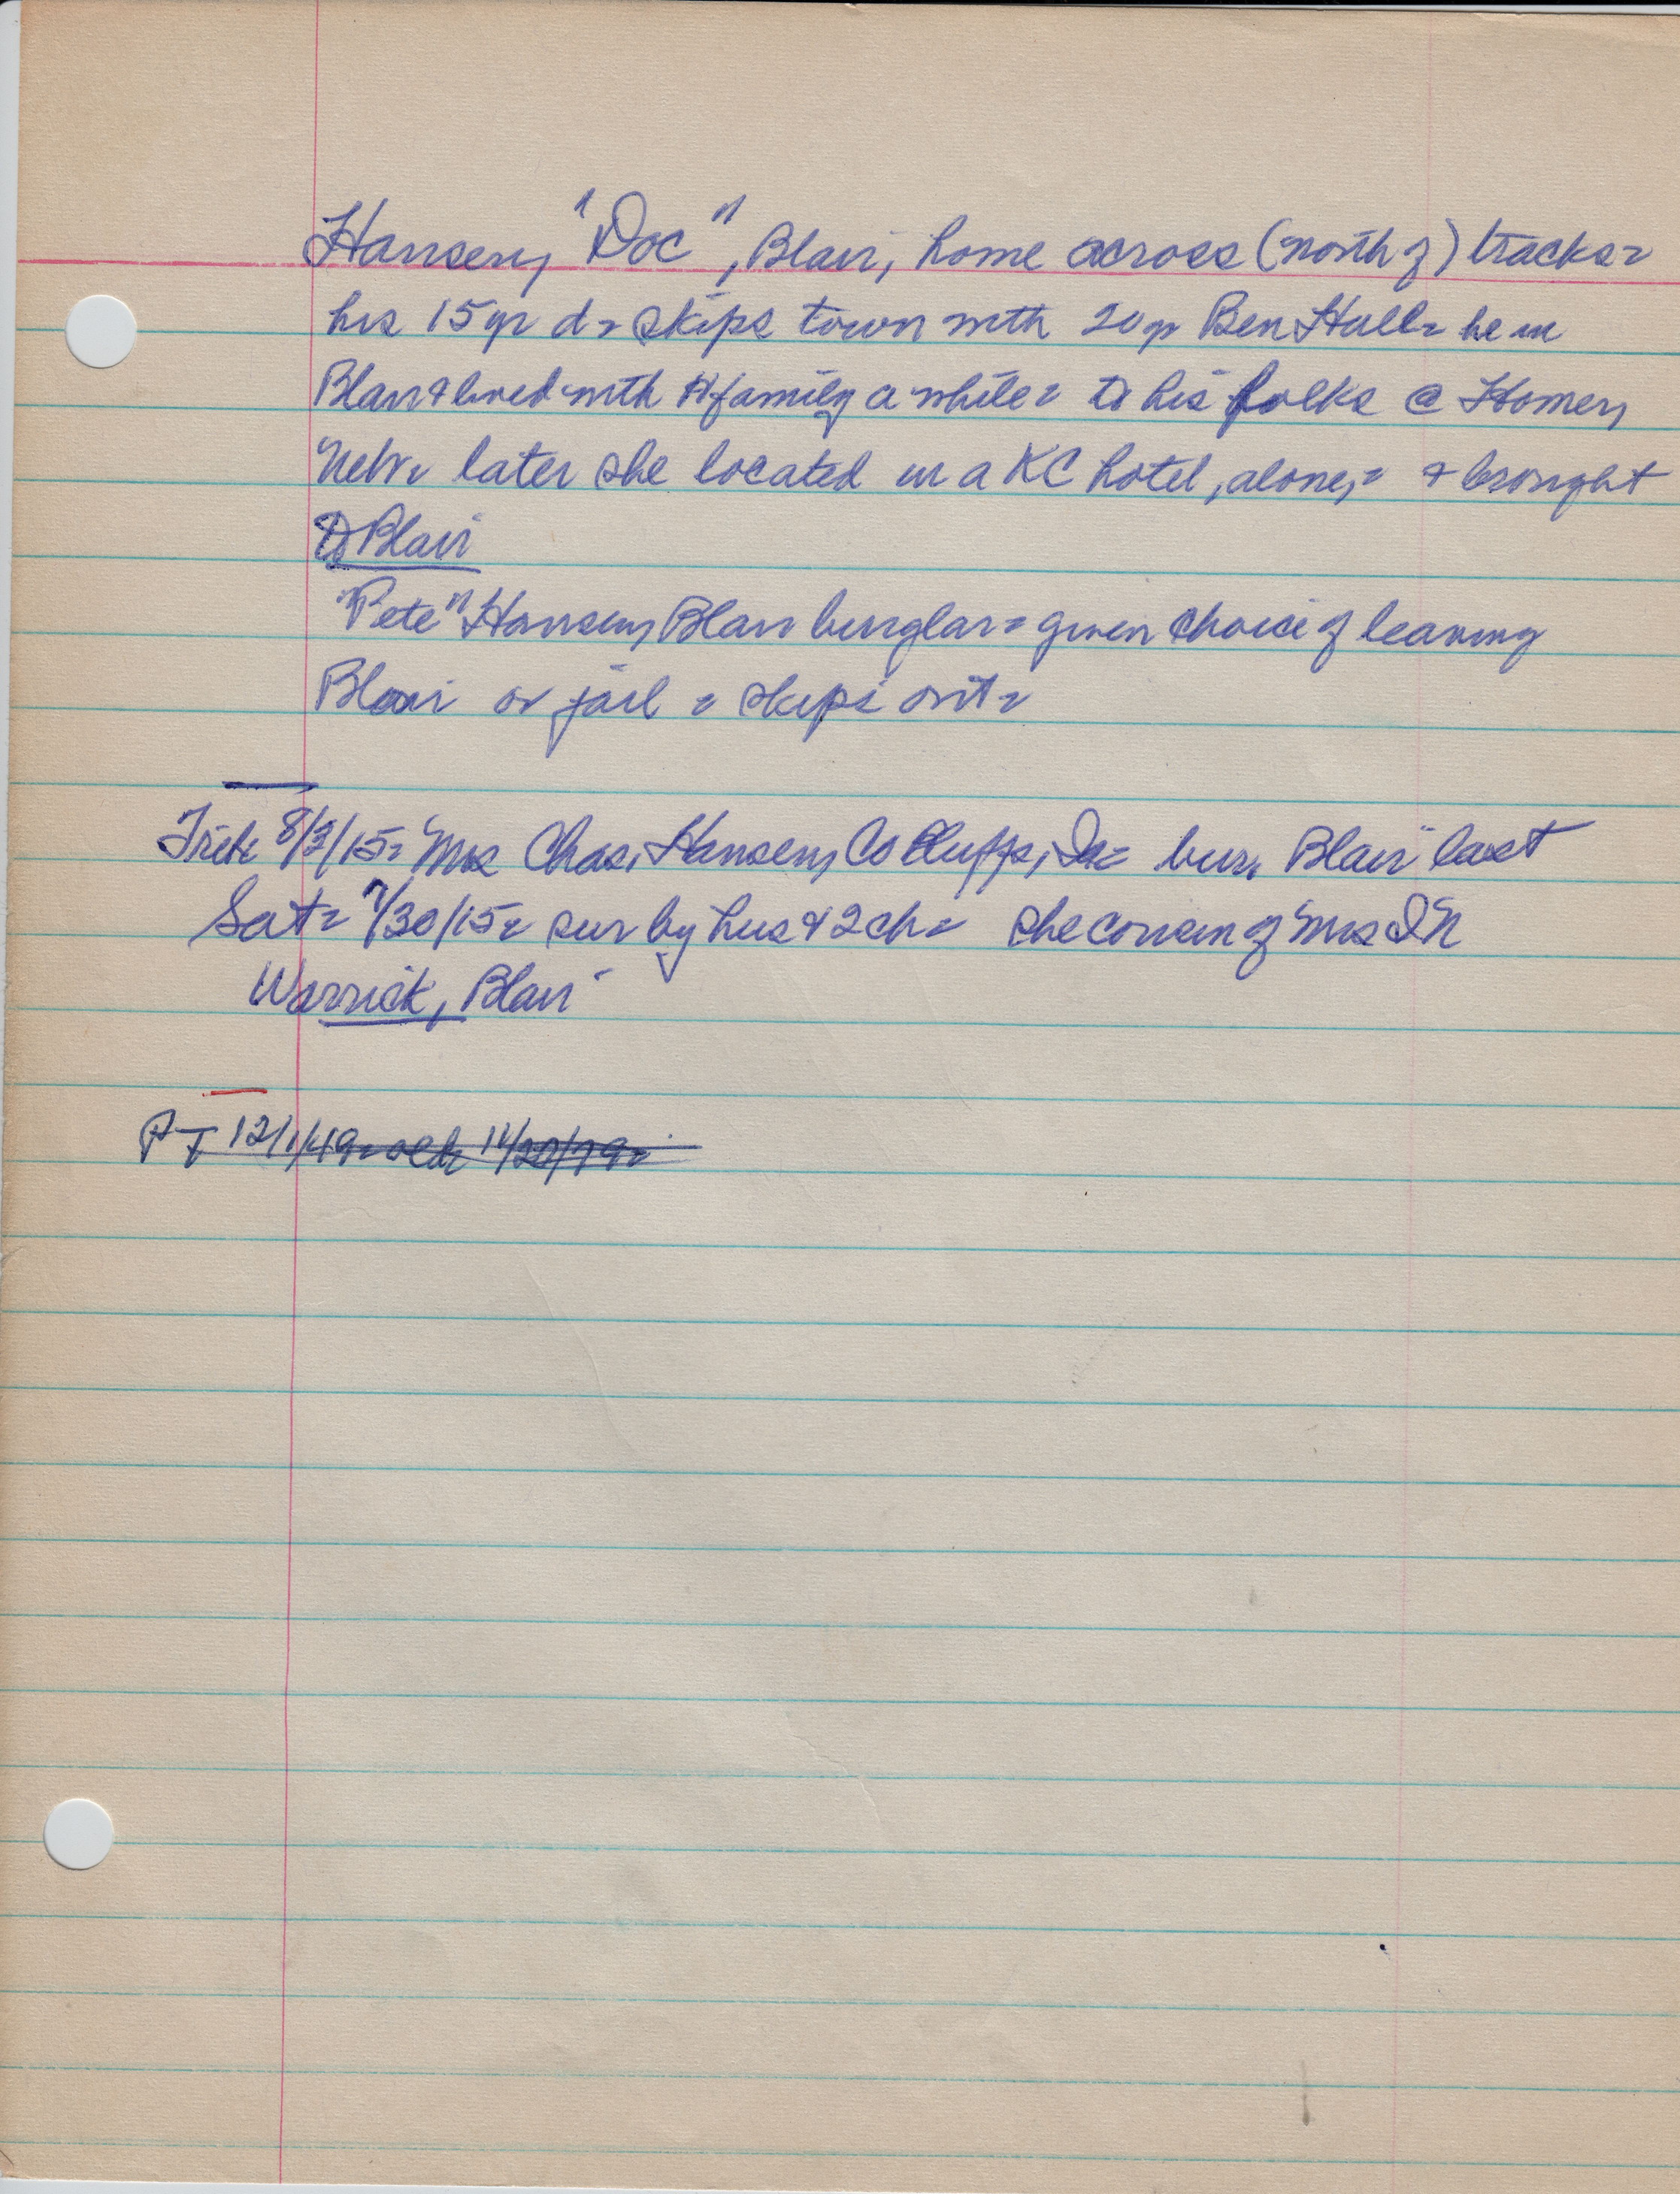 Hansen, "Doc", Blair, home across (north of) tracks=
his 15 yr d= skips town with 20 yr Ben Hull= he in
Blair & lived with H family a while= to his folks @ Homer,
Nebr= later she located in a KC hotel, alone,= & brought
to Blair
"Pete" Hansen, Blair burglar= given choice of leaving
Blair or jail = skips out=
Trib 8/3/15= Mrs Chas. Hansen, Co Bluffs, Ia= bur. Blair last
Sat= 7/30/15= sur by hus & 2 ch= she cousin of Mrs
Warrick, Blair
PT 12/1/49=